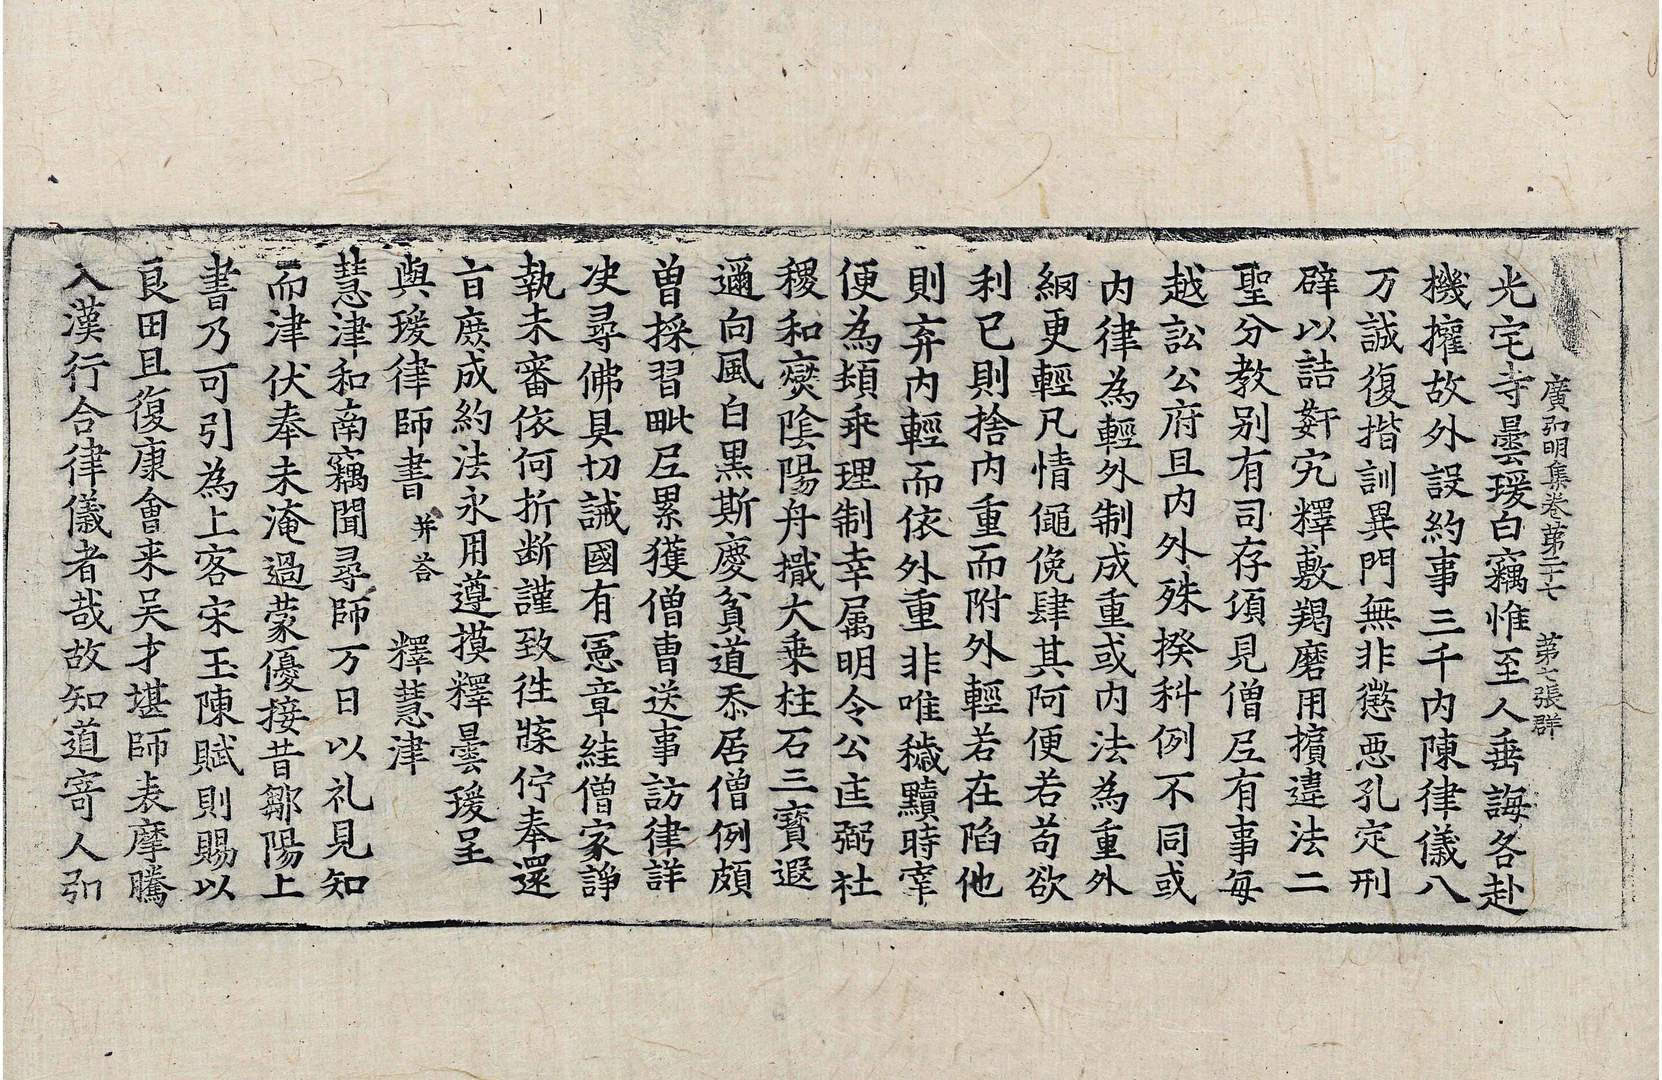 廣弘明集卷第二十七　第七張　群
光宅寺曇瑗白竊惟至人垂誨各赴
機權故外設約事三千內陳律儀八
万誠復揩訓異門無非懲惡孔定刑
辟以詰姧宄釋敷羯磨用擯違法二
聖分教別有司存頃見僧尼有事每
越訟公府且內外殊揆科例不同或
內律為輕外制成重或內法為重外
綱更輕凡情僶俛肆其阿便若苟欲
利己則捨內重而附外輕若在陷他
則弃內輕而依外重非唯穢黷時宰
便為頓乘理制幸属明令公匡弼社
稷和燮陰陽舟檝大乘柱石三寶遐
邇向風白黑斯慶貧道忝居僧例頗
曽採習毗尼累獲僧曹送事訪律詳
决尋佛具切誡國有憲章結僧家諍
執未審依何折断謹致往牒佇奉還
旨庶成約法永用遵摸釋曇瑗呈
與瑗律師書　并荅　釋慧津
慧津和南竊聞尋師万日以礼見知
而津伏奉未淹過蒙優接昔鄒陽上
書乃可引為上客宋玉陳賦則賜以
良田且復康會来吴才堪師表摩騰
入漢行合律儀者哉故知道寄人弘